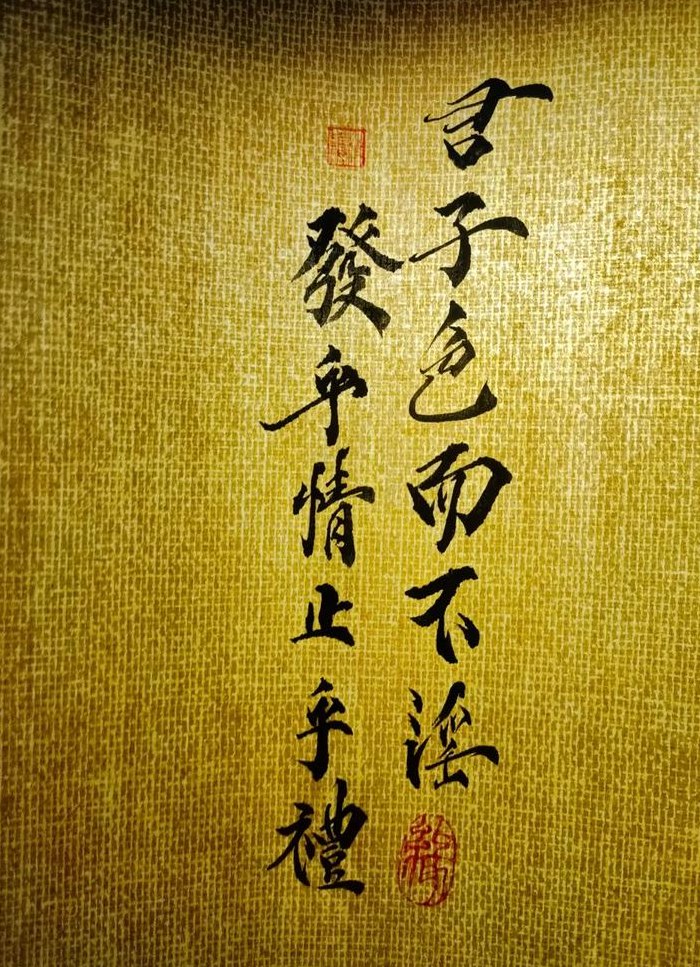 君子色而不淫
發乎情止乎禮